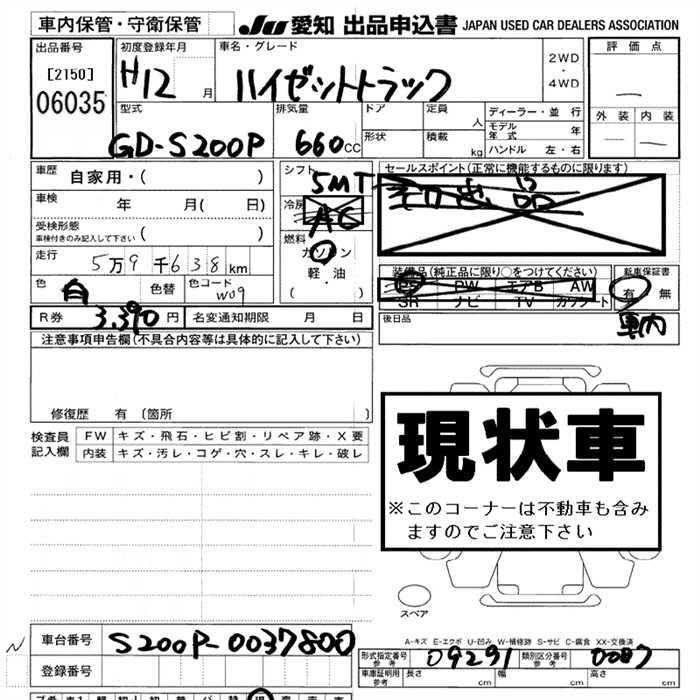 車内保管・守衛保管 JU 愛知 出品申込書 JAPAN USED CAR DEALERS ASSOCIATION
出品番号 初度登録年月 車名・グレード 2WD・4WD 評価点
[2150] H12 月 ハイゼットトラック
06035 外装 内装
型式 排気量 ドア 定員 人 ディーラー・並行
GD-S200P 660cc 形状 積載 kg モデル年式 年
ハンドル 左・右
車歴 自家用・( ) シフト 5MT セールスポイント(正常に機能するものに限ります)
車検 年 月( 日) 冷房 AC
受検形態 燃料 ガソリン
車検付きのみ記入して下さい 軽・油
走行 5万9千638km ( ) 装備品(純正品に限り○をつけてください) 新車保証書
色 白 色替 色コード W09 PS PW エアB AW 有・無
SR ナビ TV カセット
R券 3,390円 名変通知期限 月 日 後日品 車内
注意事項申告欄(不具合内容等は具体的に記入して下さい)
修復歴 有 〔箇所 〕
検査員 FW キズ・飛石・ヒビ割・リペア跡・X要
記入欄 内装 キズ・汚レ・コゲ・穴・スレ・キレ・破レ
現状車
※このコーナーは不動車も含み
ますのでご注意下さい
スペア
A-キズ E-エクボ U-凹み W-補修跡 S-サビ C-腐食 XX-交換済
車台番号 S200P-0037800
形式指定番号 参考 09291 類別区分番号 参考 0087
登録番号 車庫証明用 参考 長さ cm 幅 cm 高さ cm